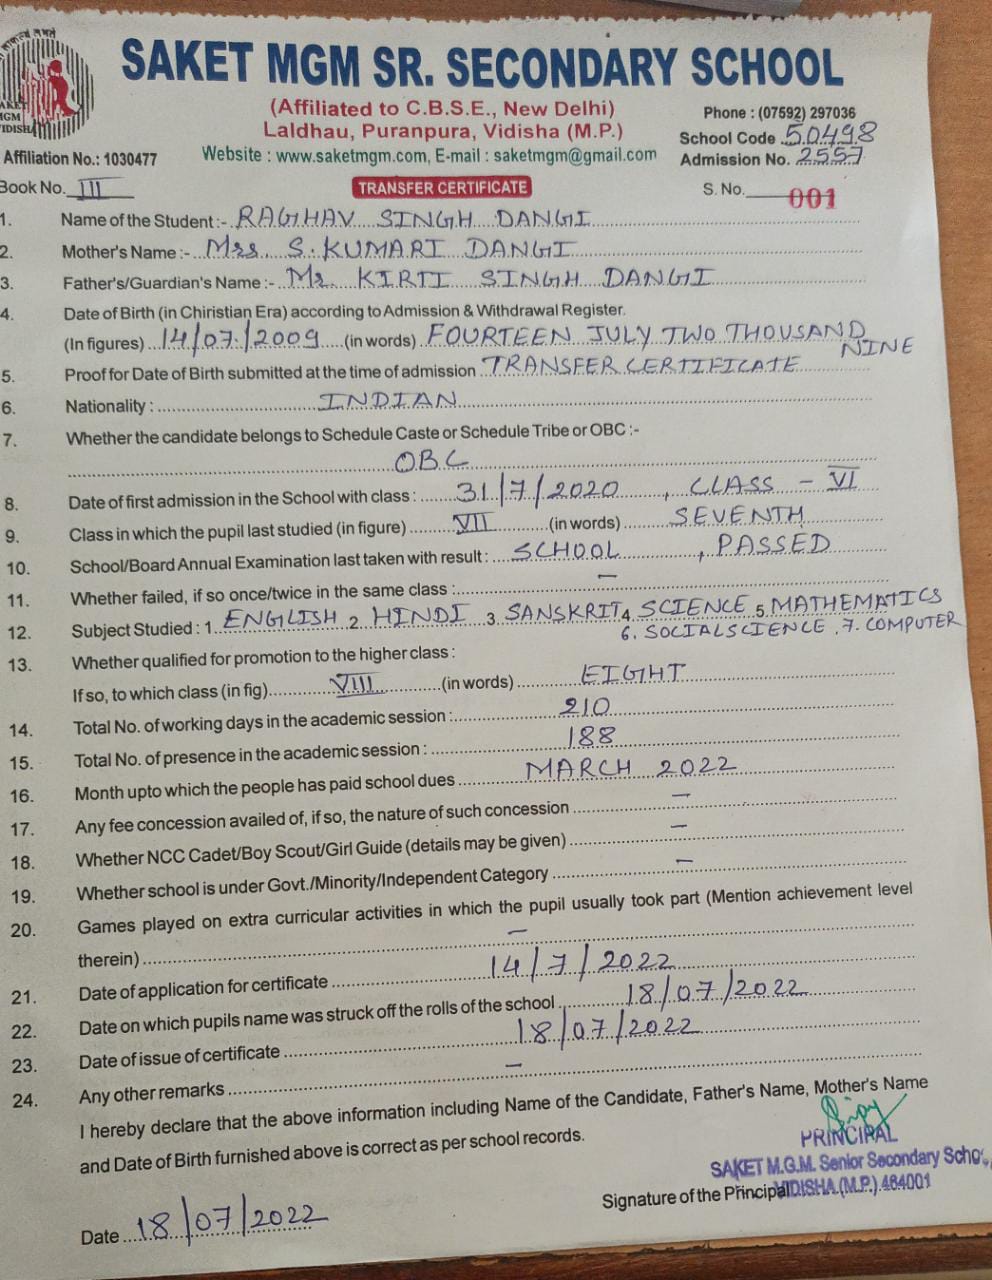 SAKET MGM SR. SECONDARY SCHOOL
(Affiliated to C.B.S.E., New Delhi)
Laldhau, Puranpura, Vidisha (M.P.)
Website : www.saketmgm.com, E-mail : saketmgm@gmail.com
Phone : (07592) 297036
School Code 50498
Admission No. 2557
Affiliation No.: 1030477
Book No. III
TRANSFER CERTIFICATE
S. No. 001
1. Name of the Student:- RAGHAV SINGH DANGI
2. Mother's Name :- Mrs. S. KUMARI DANGI
3. Father's/Guardian's Name :- Mr. KIRTI SINGH DANGI
4. Date of Birth (in Chiristian Era) according to Admission & Withdrawal Register.
(In figures) 14/07/2009 (in words) FOURTEEN JULY TWO THOUSAND
NINE
5. Proof for Date of Birth submitted at the time of admission TRANSFER CERTIFICATE
6. Nationality : INDIAN
7. Whether the candidate belongs to Schedule Caste or Schedule Tribe or OBC :-
OBC
8. Date of first admission in the School with class : 31/7/2020, CLASS - VI
9. Class in which the pupil last studied (in figure) VII (in words) SEVENTH
10. School/Board Annual Examination last taken with result : SCHOOL, PASSED
11. Whether failed, if so once/twice in the same class : —
12. Subject Studied : 1. ENGLISH 2. HINDI 3. SANSKRIT 4. SCIENCE 5. MATHEMATICS
6. SOCIAL SCIENCE, 7. COMPUTER
13. Whether qualified for promotion to the higher class :
If so, to which class (in fig) VIII (in words) EIGHT
14. Total No. of working days in the academic session : 210
15. Total No. of presence in the academic session : 188
16. Month upto which the people has paid school dues MARCH 2022
17. Any fee concession availed of, if so, the nature of such concession —
18. Whether NCC Cadet/Boy Scout/Girl Guide (details may be given) —
19. Whether school is under Govt./Minority/Independent Category —
20. Games played on extra curricular activities in which the pupil usually took part (Mention achievement level
therein) —
21. Date of application for certificate 14/7/2022
22. Date on which pupils name was struck off the rolls of the school 18/07/2022
23. Date of issue of certificate 18/07/2022
24. Any other remarks —
I hereby declare that the above information including Name of the Candidate, Father's Name, Mother's Name
and Date of Birth furnished above is correct as per school records.
PRINCIPAL
SAKET M.G.M. Senior Secondary Schoo
VIDISHA (M.P.) 464001
Signature of the Principal
Date 18/07/2022